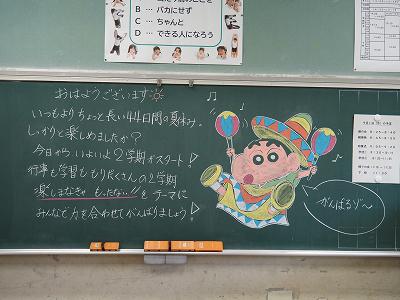 B … バカにせず
C … ちゃんと
D … できる人になろう
おはようございます
いつもよりちょっと長い44日間の夏休み。
しっかりと楽しめましたか?
今日からいよいよ2学期がスタート!
行事も学習ももりだくさんの2学期
楽しまなきゃもったない!!をテーマに
みんなで力を合わせてがんばりましょう!
がんばるゾ〜